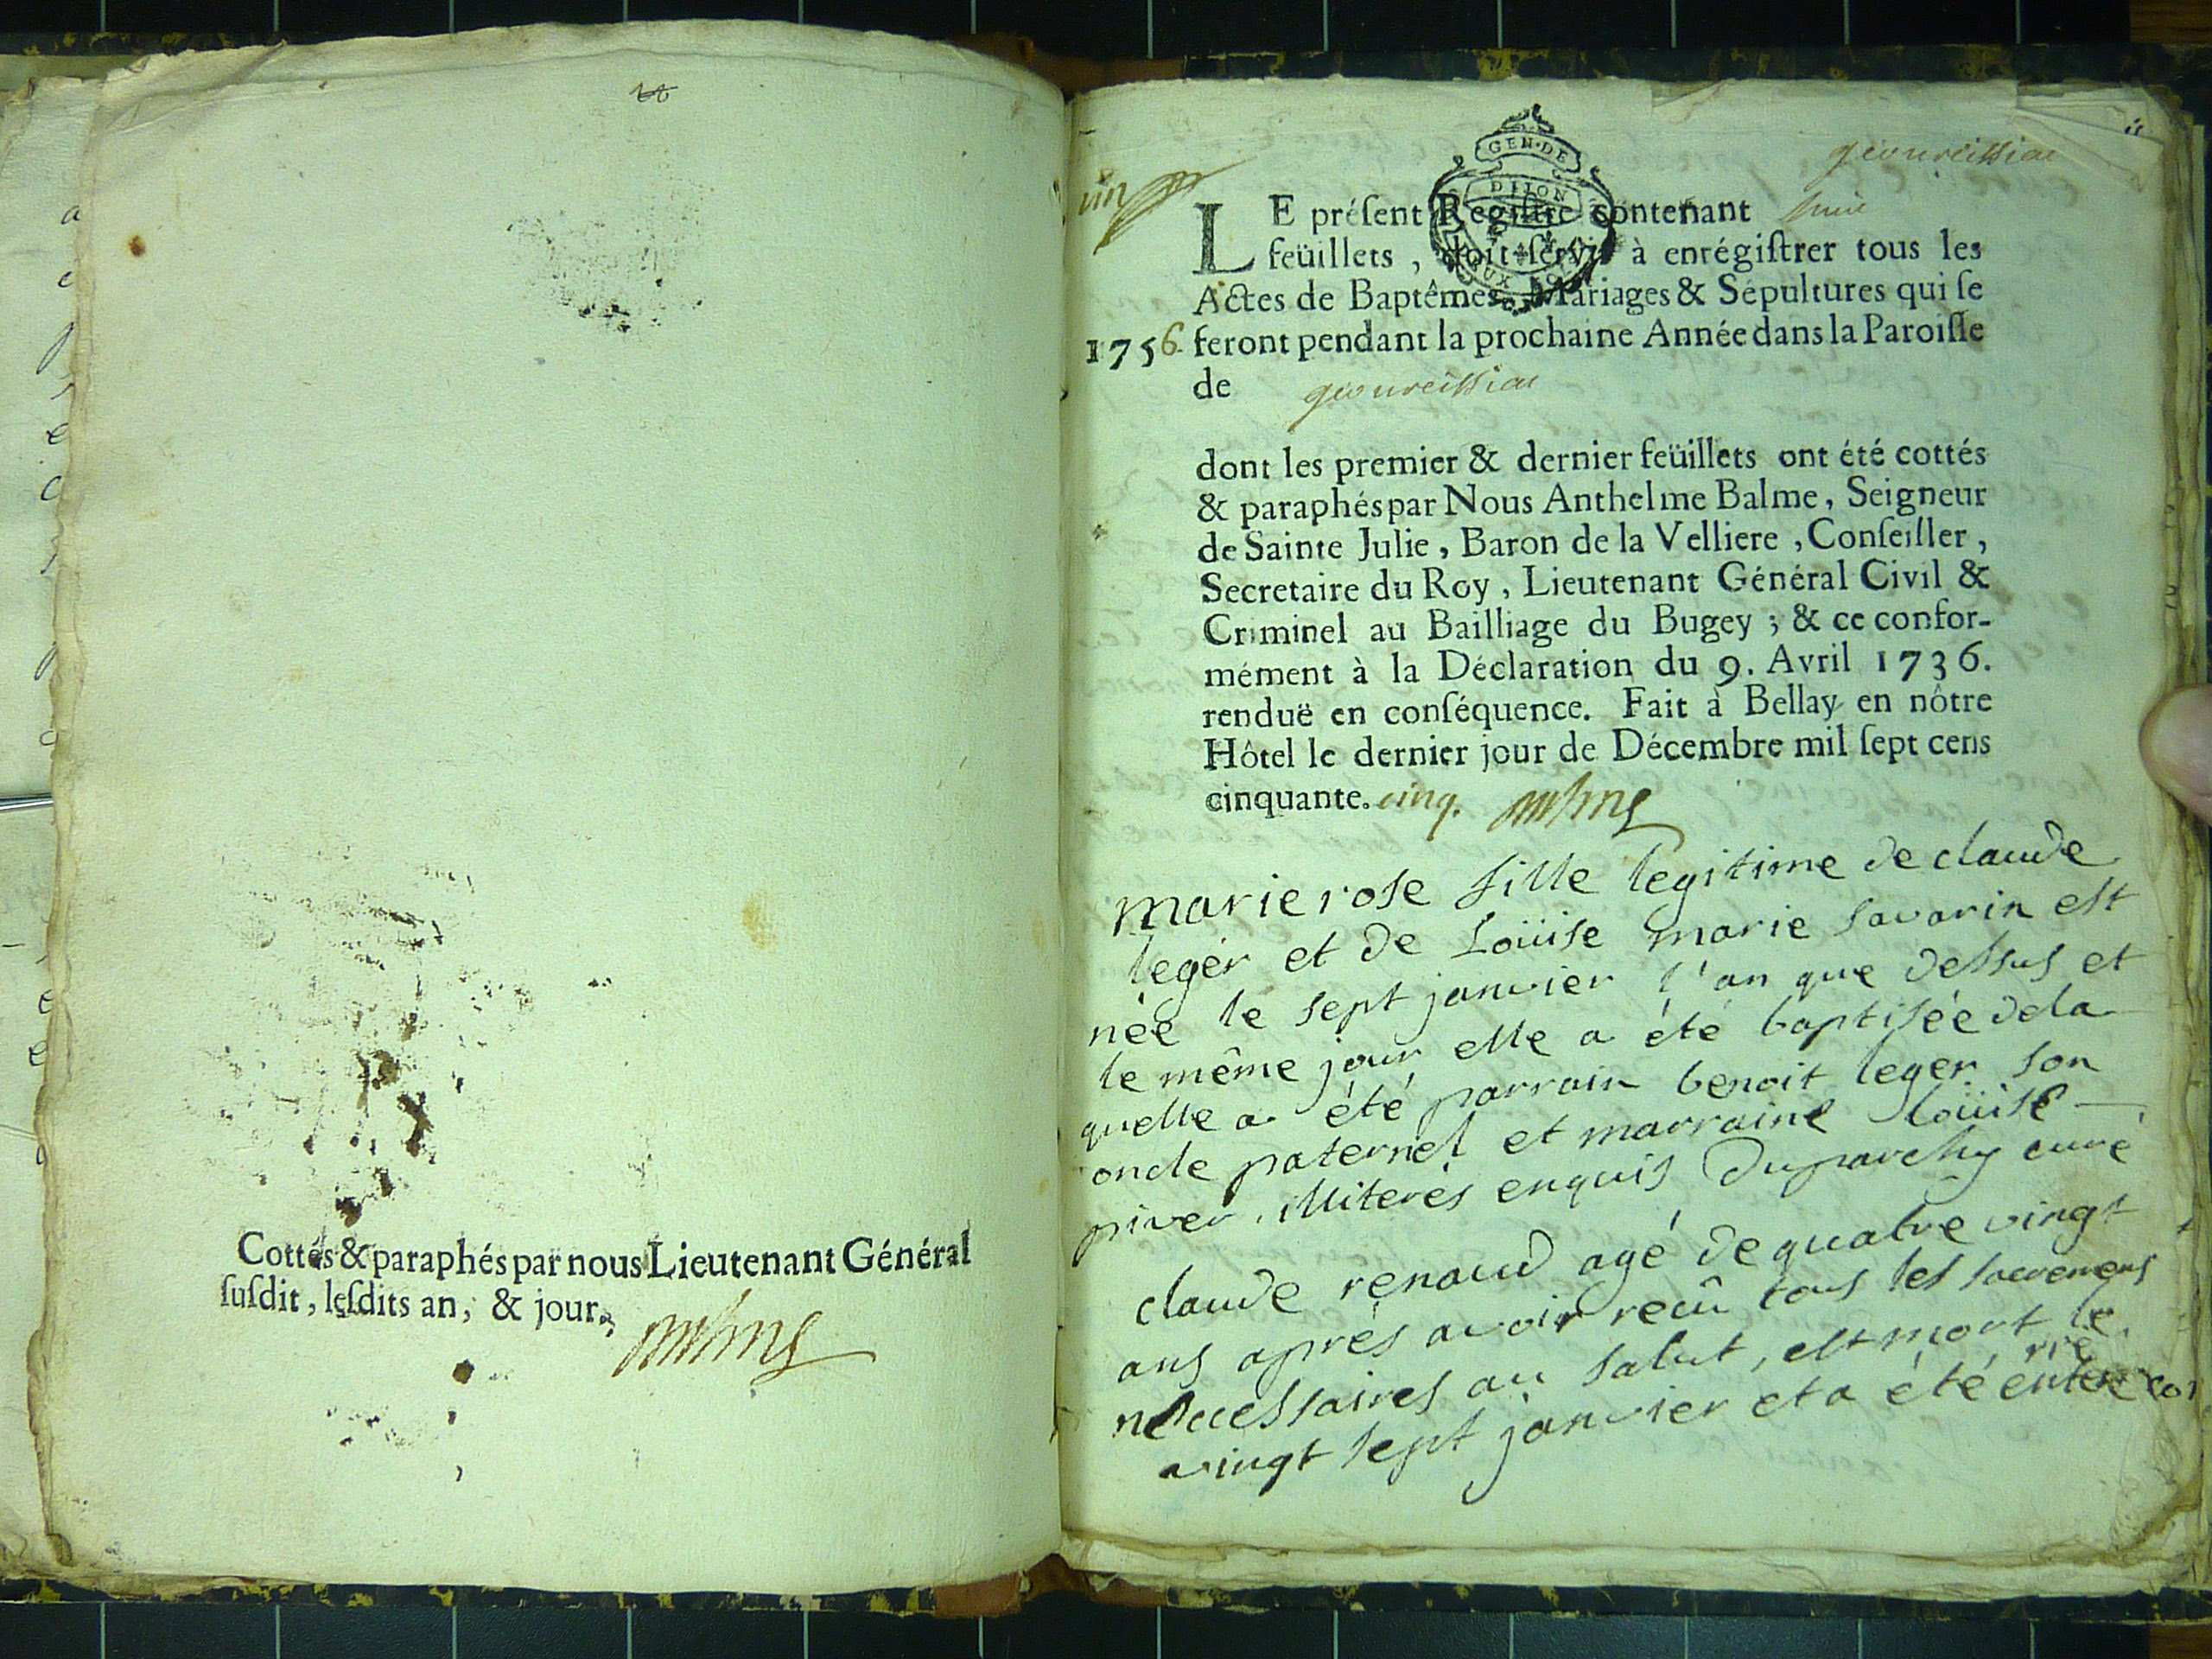 Cottés & paraphés par nous Lieutenant Général
ſuſdit, leſdits an, & jour.
geoureissiat
un
GEN·DE
DIJON
LE préſent Regiſtre contenant huit
feüillets, doit ſervir à enrégiſtrer tous les
Actes de Baptêmes, Mariages & Sépultures qui ſe
1756. feront pendant la prochaine Année dans la Paroiſſe
de geoureissiat
dont les premier & dernier feüillets ont été cottés
& paraphés par Nous Anthelme Balme, Seigneur
de Sainte Julie, Baron de la Velliere, Conſeiller,
Secretaire du Roy, Lieutenant Général Civil &
Criminel au Bailliage du Bugey; & ce confor-
mément à la Déclaration du 9. Avril 1736.
renduë en conſéquence. Fait à Bellay en nôtre
Hôtel le dernier jour de Décembre mil ſept cens
cinquante. cinq.
marie rose fille legitime de claude
leger et de Loüise marie savarin est
née le sept janvier l'an que dessus et
le même jour elle a été baptisée de la
quelle a été parrain benoit leger son
oncle paternel et marraine loüise
piver, illiterés enquis Duparchy curé
claude renaud agé de quatre vingt
ans aprés avoir reçû tous les sacremens
necessaires au salut, est mort le
vingt sept janvier et a été enterré